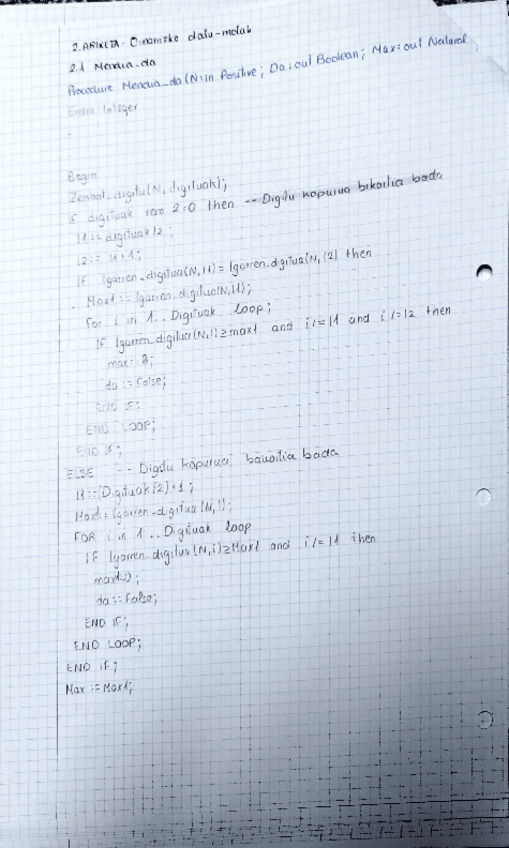 2. ARIKETA: Dinamizko datu-motak
2.1 Mendia_da
Procedure Mendia_da (N: in Positive; Da: out Boolean; Max: out Natural
Integer
Begin
Zenbat_digitu(N, digituak);
if digituak rem 2=0 then -- Digitu kopurua bikoitia bada
I1 := digituak/2;
I2 := I1+1;
if Igarren_digitua(N, I1) = Igarren_digitua(N, I2) then
Max1 := Igarren_digitua(N, I1);
for i in 1..Digituak loop;
IF Igarren_digitua(N, I) ≥ max1 and i /= I1 and i /= I2 then
da := False;
END IF;
END LOOP;
END IF;
ELSE -- Digitu kopurua bakoitia bada
I1 := (Digituak/2)+1;
Max1 := Igarren_digitua(N, I);
FOR i in 1..Digituak loop
IF Igarren_digitua(N, i) ≥ Max1 and i /= I1 then
da := False;
END IF;
END LOOP;
END IF;
Max := Max1;